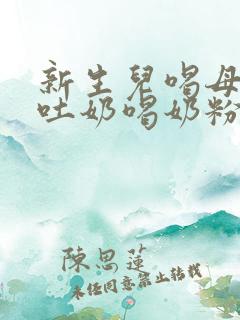 新生儿喝母
吐奶喝奶粉
陈思莲
未经同意禁止转载